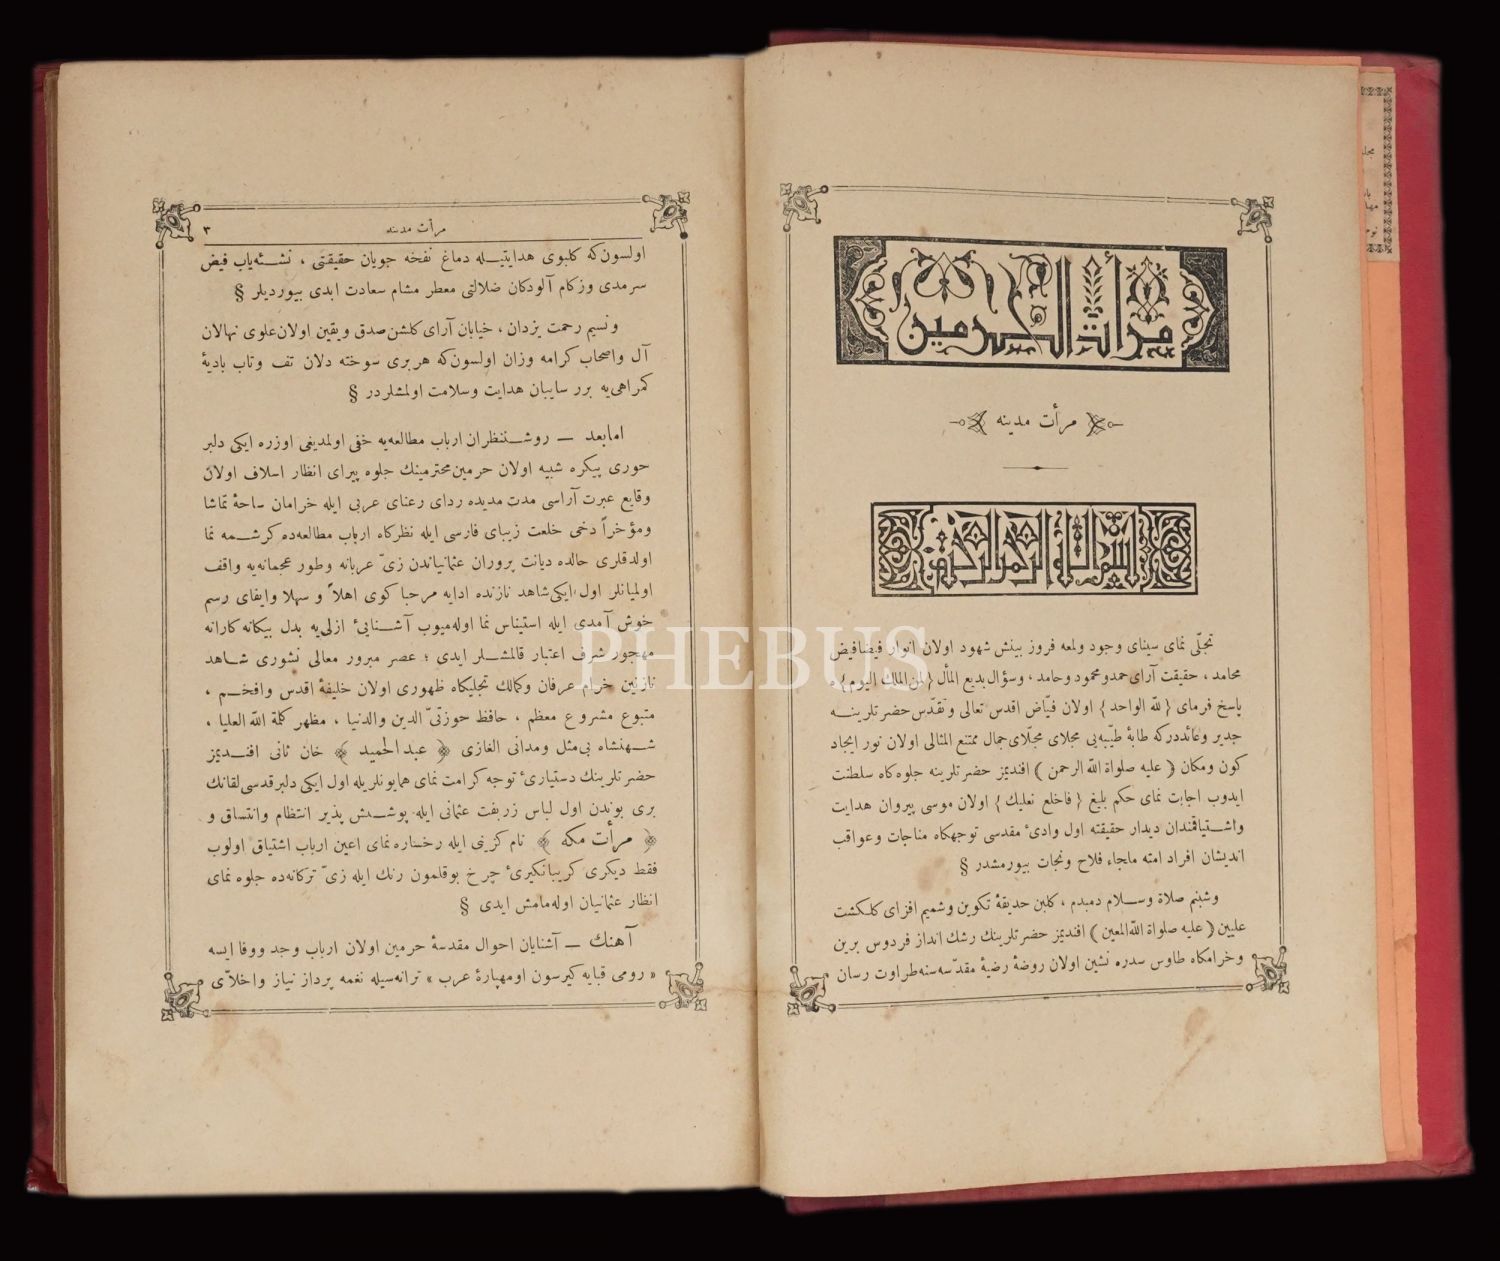 مرأت الحرمين
مرأت مدينه
بسم الله الرحمن الرحيم
تجلّی نمای سینای وجود ولمعه فروز بینش شهود اولان انوار فیضافیض
محامد ، حقیقت آرای حمدو محمود و حامد ، وسؤال بدیع المأل {لمن الملك الیوم} ه
پاسخ فرمای { لله الواحد } اولان فیّاض اقدس تعالی وتقدّس حضرتلرینه
جدیر وعائددرکه طابهٔ طیّبه‌یی مجلای مجلّای جمال ممتنع المثالی اولان نور ایجاد
کون ومکان ( علیه صلواة الله الرحمن ) افندیمز حضرتلرینه جلوه‌گاه سلطنت
ایدوب اجابت نمای حکم بلیغ { فاخلع نعلیك } اولان موسی پیروان هدایت
واشتیاقمندان دیدار حقیقته اول وادیٔ مقدسی توجهگاه مناجات وعواقب
اندیشان افراد امته ملجاء فلاح ونجات بیورمشدر §
وشبنم صلاة وسلام دمبدم ، کلبن حدیقهٔ تکوین وشمیم افزای کلکشت
علیین ( علیه صلواة الله المعین ) افندیمز حضرتلرینك رشك انداز فردوس برین
وخرامگاه طاوس سدره نشین اولان روضهٔ رضیهٔ مقدّسه‌سنه طراوت رسان
مرأت مدینه
٣
اولسون‌که کلبوی هدایتیله دماغ نفخه جویان حقیقتی ، نشئه‌یاب فیض
سرمدی وزکام آلودکان ضلالتی معطر مشام سعادت ابدی بیوردیلر §
ونسیم رحمت یزدان ، خیابان آرای کلشن صدق ویقین اولان علوی نهالان
آل واصحاب کرامه وزان اولسون‌که هربری سوخته دلان تف وتاب بادیهٔ
کمراهی‌یه برر سایبان هدایت وسلامت اولمشلردر §
امابعد — روشننظران ارباب مطالعه‌یه خفی اولمدیغی اوزره ایکی دلبر
حوری پیکره شبیه اولان حرمین محترمینك جلوه پیرای انظار اسلاف اولان
وقایع عبرت آراسی مدت مدیده ردای رعنای عربی ایله خرامان ساحهٔ تماشا
ومؤخراً دخی خلعت زیبای فارسی ایله نظرکاه ارباب مطالعه‌ده کرشمه نما
اولدقلری حالده دیانت پروران عثمانیاندن زیّ عربانه وطور عجمانه‌یه واقف
اولمیانلر اول ایکی شاهد نازنده ادایه مرحبا کوی اهلاً و سهلا وایفای رسم
خوش آمدی ایله استیناس نما اوله‌میوب آشنایٔ ازلی‌یه بدل بیکانه کارانه
مهجور شرف اعتبار قالمشلر ایدی ؛ عصر مبرور معالی نشوری شاهد
نازنین خرام عرفان وکمالك تجلیکاه ظهوری اولان خلیفهٔ اقدس وافخم ،
متبوع مشروع معظم ، حافظ حوزتیّ الدین والدنیا ، مظهر کلمة الله العلیا ،
شهنشاه بی‌مثل ومدانی الغازی ﴿ عبد الحمید ﴾ خان ثانی افندیمز
حضرتلرینك دستیاریٔ توجه کرامت نمای همایونلریله اول ایکی دلبر قدسی لقانك
بری بوندن اول لباس زربفت عثمانی ایله پوشش پذیر انتظام وانتساق و
﴿ مرأت مکه ﴾ نام کزینی ایله رخساره نمای اعین ارباب اشتیاق اولوب
فقط دیکری کریبانکیریٔ چرخ بوقلمون رنك ایله زیّ ترکانه‌ده جلوه نمای
انظار عثمانیان اوله‌مامش ایدی §
آهنك — آشنایان احوال مقدسهٔ حرمین اولان ارباب وجد ووفا ایسه
« رومی قبایه کیرسون اومهپارهٔ عرب » ترانه‌سیله نغمه پرداز نیاز واخلاّی
PHEBUS